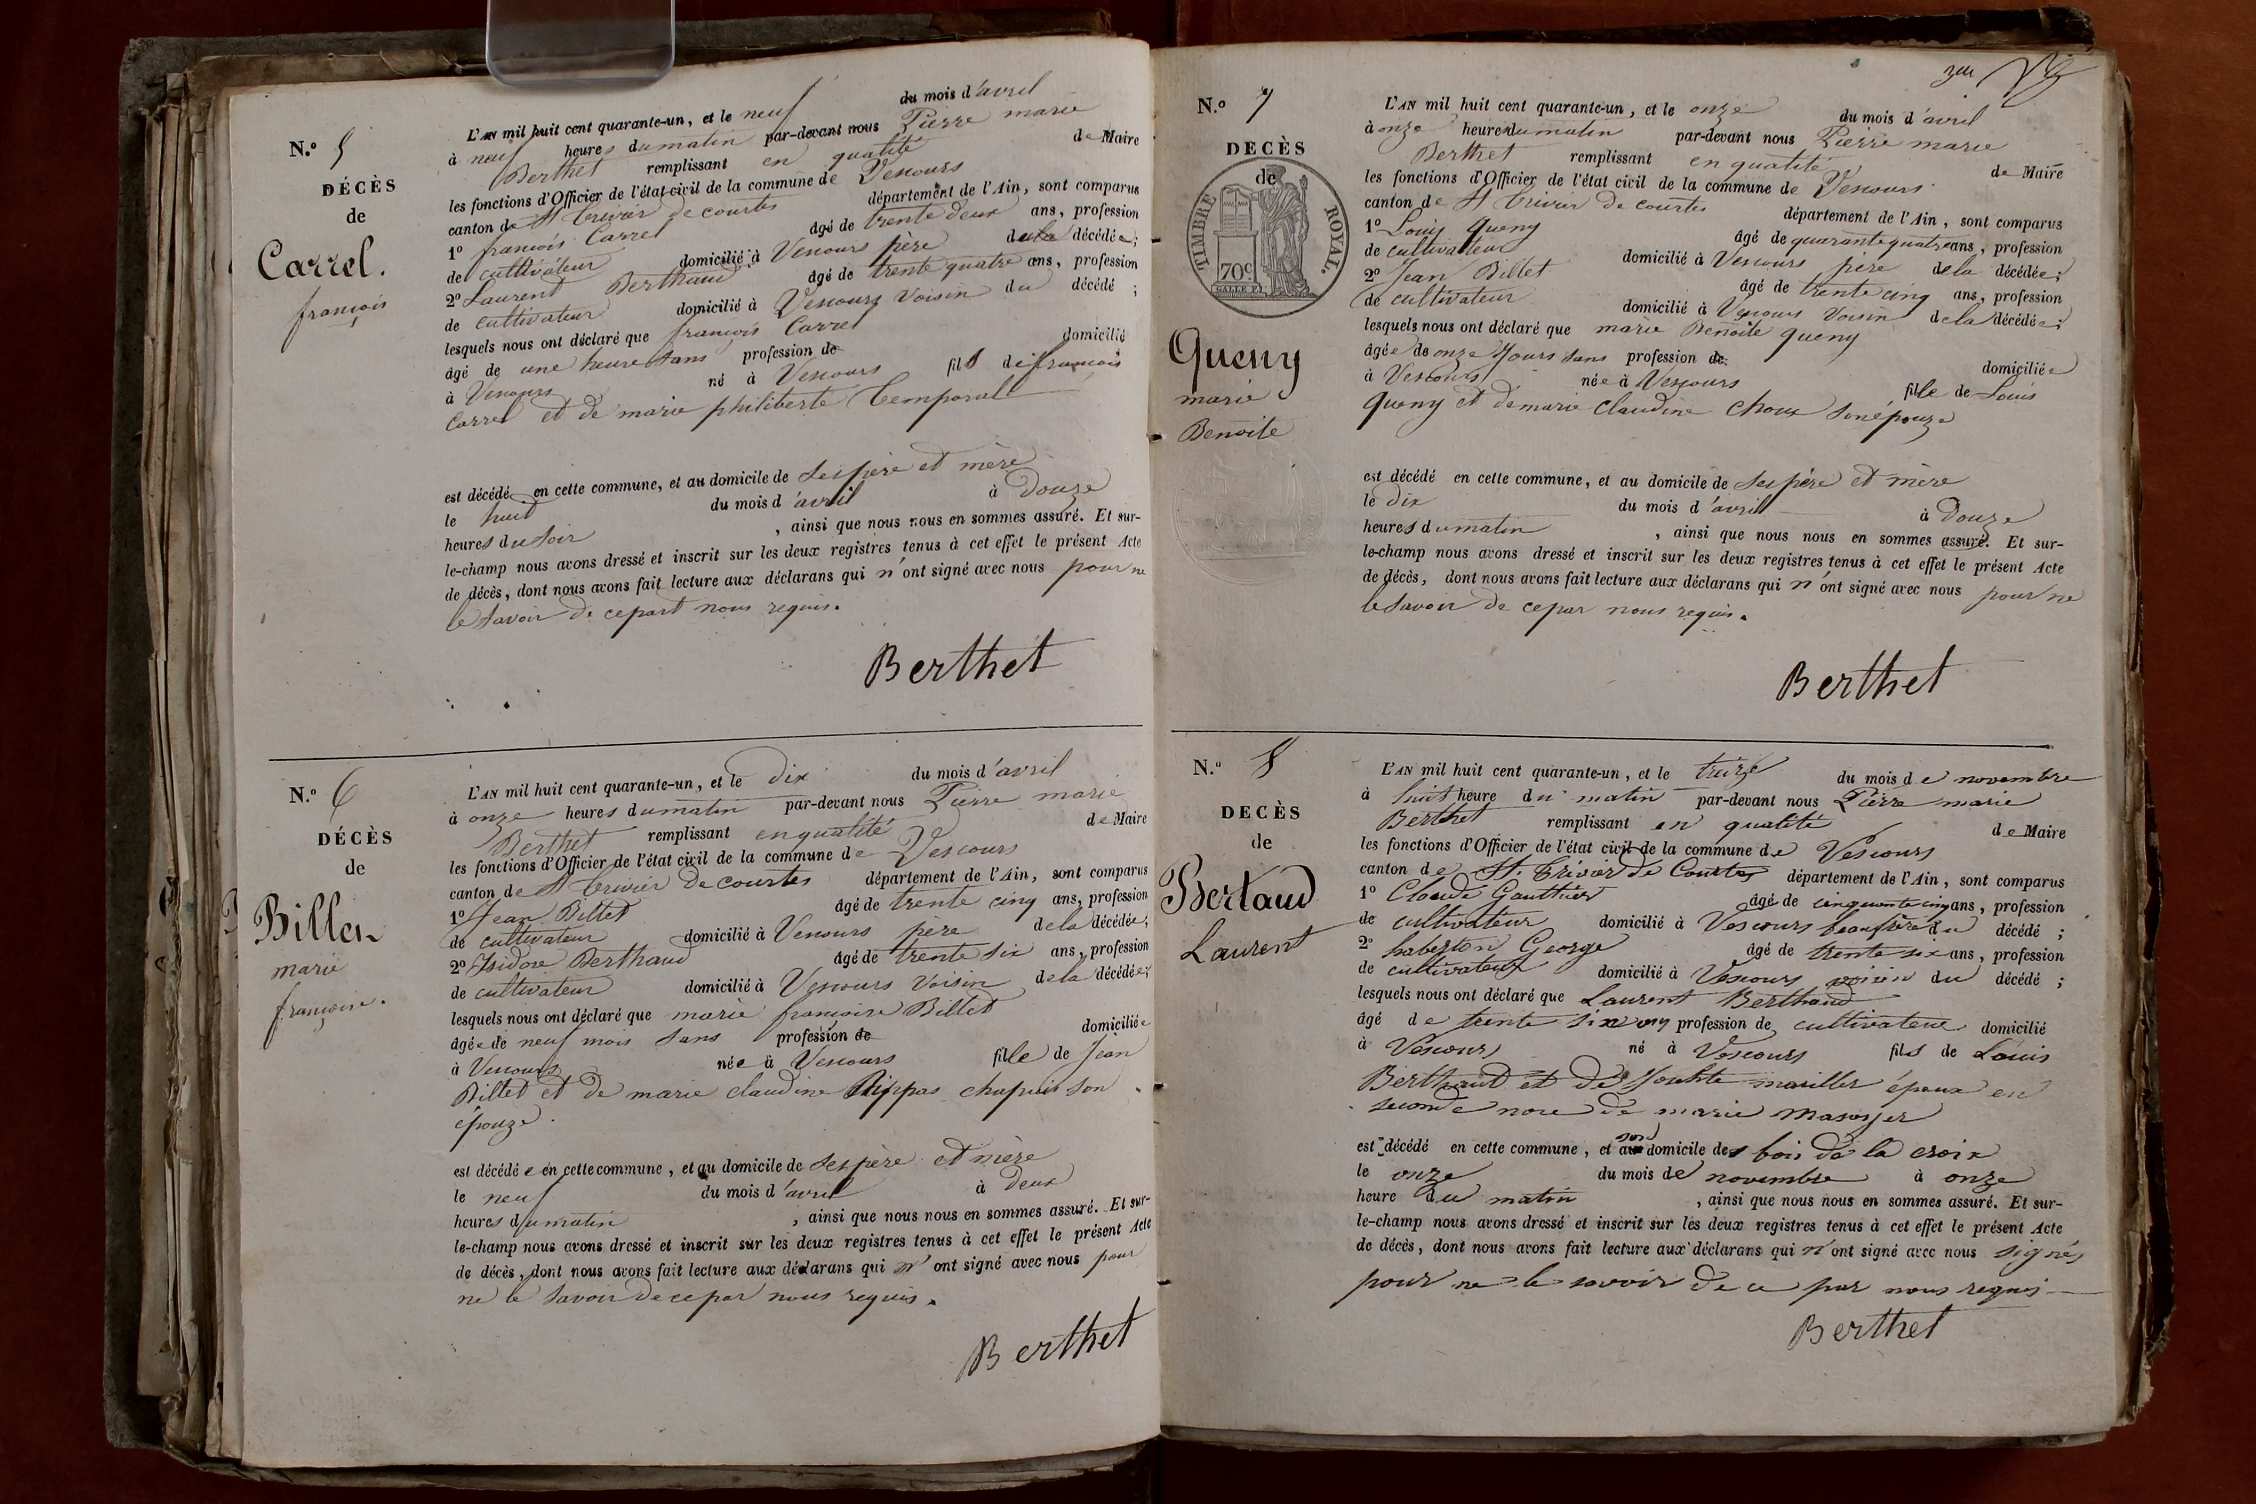 N.º 5
DÉCÈS
de
Carrel.
françois
L'AN mil huit cent quarante-un, et le neuf du mois d'avril
à neuf heures du matin par-devant nous Pierre marie
Berthet remplissant en qualité de Maire
les fonctions d'Officier de l'état civil de la commune de Vescours
canton de St trivier de courtes département de l'Ain, sont comparus
1º françois Carrel âgé de trente deux ans, profession
de cultivateur domicilié à Vescours père de la décédée;
2º Laurent Berthaud âgé de trente quatre ans, profession
de cultivateur domicilié à Vescours voisin du décédé ;
lesquels nous ont déclaré que françois Carrel
âgé de une heure sans profession de domicilié
à Vescours né à Vescours fils de françois
Carrel et de marie philiberte Temporal
est décédé en cette commune, et au domicile de ses père et mère
le huit du mois d'avril à Douze
heures du soir , ainsi que nous nous en sommes assuré. Et sur-
le-champ nous avons dressé et inscrit sur les deux registres tenus à cet effet le présent Acte
de décès, dont nous avons fait lecture aux déclarans qui n'ont signé avec nous pour ne
le savoir de ce part nous requis.
Berthet
N.º 6
DÉCÈS
de
Billet
marie
françoise.
L'AN mil huit cent quarante-un, et le dix du mois d'avril
à onze heures du matin par-devant nous Pierre marie
Berthet remplissant en qualité de Maire
les fonctions d'Officier de l'état civil de la commune de Vescours
canton de St trivier de courtes département de l'Ain, sont comparus
1º Jean Billet âgé de trente cinq ans, profession
de cultivateur domicilié à Vescours père de la décédée;
2º Isidore Berthaud âgé de trente six ans, profession
de cultivateur domicilié à Vescours voisin de la décédée;
lesquels nous ont déclaré que marie françoise Billet
âgée de neuf mois sans profession de domiciliée
à Vescours née à Vescours fille de Jean
Billet et de marie claudine chapuis son
épouze.
est décédée en cette commune, et au domicile de ses père et mère
le neuf du mois d'avril à deux
heures du matin , ainsi que nous nous en sommes assuré. Et sur-
le-champ nous avons dressé et inscrit sur les deux registres tenus à cet effet le présent Acte
de décès, dont nous avons fait lecture aux déclarans qui n'ont signé avec nous pour
ne le savoir de ce par nous requis.
Berthet
N.º 7
DECÈS
de
TIMBRE ROYAL.
70 c
Queny
marie
Benoite
L'AN mil huit cent quarante-un, et le onze du mois d'avril
à onze heures du matin par-devant nous Pierre marie
Berthet remplissant en qualité de Maire
les fonctions d'Officier de l'état civil de la commune de Vescours
canton de St trivier de courtes département de l'Ain, sont comparus
1º Louis Queny âgé de quarante quatre ans, profession
de cultivateur domicilié à Vescours père de la décédée;
2º Jean Billet âgé de trente cinq ans, profession
de cultivateur domicilié à Vescours voisin de la décédée;
lesquels nous ont déclaré que marie Benoite queny
âgée de onze Jours sans profession de domiciliée
à Vescours née à Vescours fille de Louis
queny et de marie claudine choux son épouze
est décédé en cette commune, et au domicile de ses père et mère
le dix du mois d'avril à Douze
heures du matin , ainsi que nous nous en sommes assuré. Et sur-
le-champ nous avons dressé et inscrit sur les deux registres tenus à cet effet le présent Acte
de décès, dont nous avons fait lecture aux déclarans qui n'ont signé avec nous pour ne
le savoir de ce par nous requis.
Berthet
N.º 8
DECÈS
de
Bertaud
Laurent
L'AN mil huit cent quarante-un, et le treize du mois de novembre
à huit heure du matin par-devant nous Pierre marie
Berthet remplissant en qualité de Maire
les fonctions d'Officier de l'état civil de la commune de Vescours
canton de St. Trivier de Courtes département de l'Ain, sont comparus
1º Claude Gauthier âgé de cinquante cinq ans, profession
de cultivateur domicilié à Vescours beaufrère du décédé ;
2º haberton George âgé de trente six ans, profession
de cultivateur domicilié à Vescours voisin du décédé ;
lesquels nous ont déclaré que Laurent Berthaud
âgé de trente six ans profession de cultivateur domicilié
à Vescours né à Vescours fils de Louis
Berthaud et de mariller époux en
seconde noce de marie
est décédé en cette commune, et son domicile des bois de la croix
le onze du mois de novembre à onze
heure du matin , ainsi que nous nous en sommes assuré. Et sur-
le-champ nous avons dressé et inscrit sur les deux registres tenus à cet effet le présent Acte
de décès, dont nous avons fait lecture aux déclarans qui n'ont signé avec nous signés
pour ne le savoir de ce par nous requis
Berthet